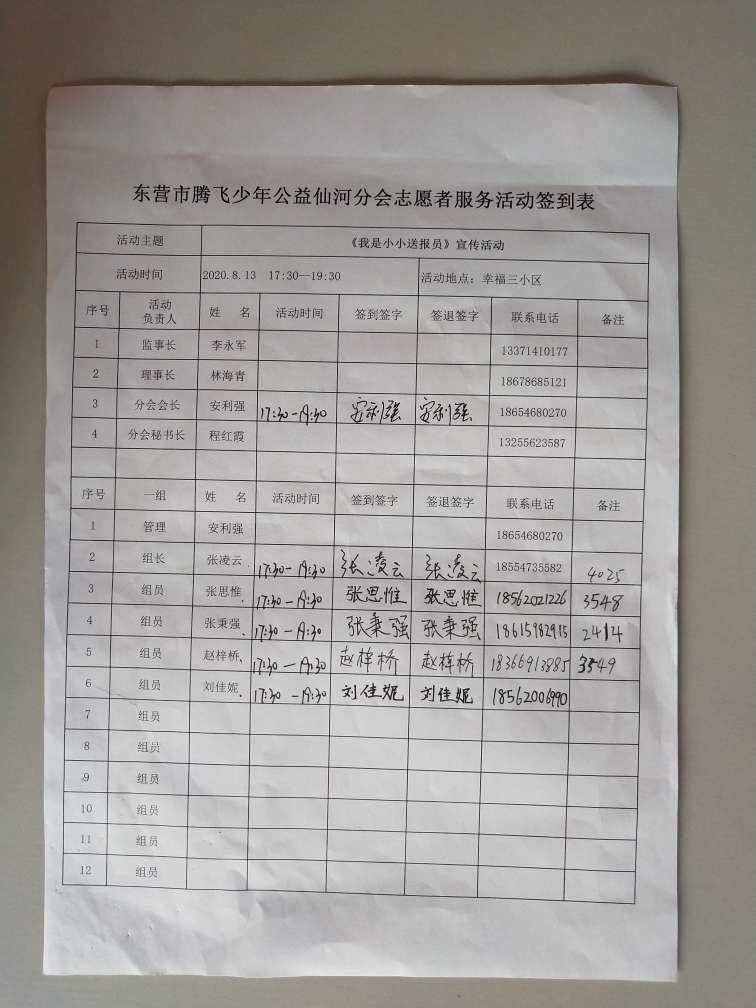 东营市腾飞少年公益仙河分会志愿者服务活动签到表
活动主题 《我是小小送报员》宣传活动
活动时间 2020.8.13 17:30--19:30 活动地点：幸福三小区
序号 活动负责人 姓 名 活动时间 签到签字 签退签字 联系电话 备注
1 监事长 李永军 13371410177
2 理事长 林海青 18678685121
3 分会会长 安利强 17:30-19:30 安利强 安利强 18654680270
4 分会秘书长 程红霞 13255623587
序号 一组 姓 名 活动时间 签到签字 签退签字 联系电话 备注
1 管理 安利强 18654680270
2 组长 张凌云 17:30-19:30 张凌云 张凌云 18554735582 4025
3 组员 张思惟 17:30-19:30 张思惟 张思惟 18562021226 3548
4 组员 张秉强 17:30-19:30 张秉强 张秉强 18615982915 2414
5 组员 赵梓桥 17:30-19:30 赵梓桥 赵梓桥 18366913885 3549
6 组员 刘佳妮 17:30-19:30 刘佳妮 刘佳妮 18562006990
7 组员
8 组员
9 组员
10 组员
11 组员
12 组员